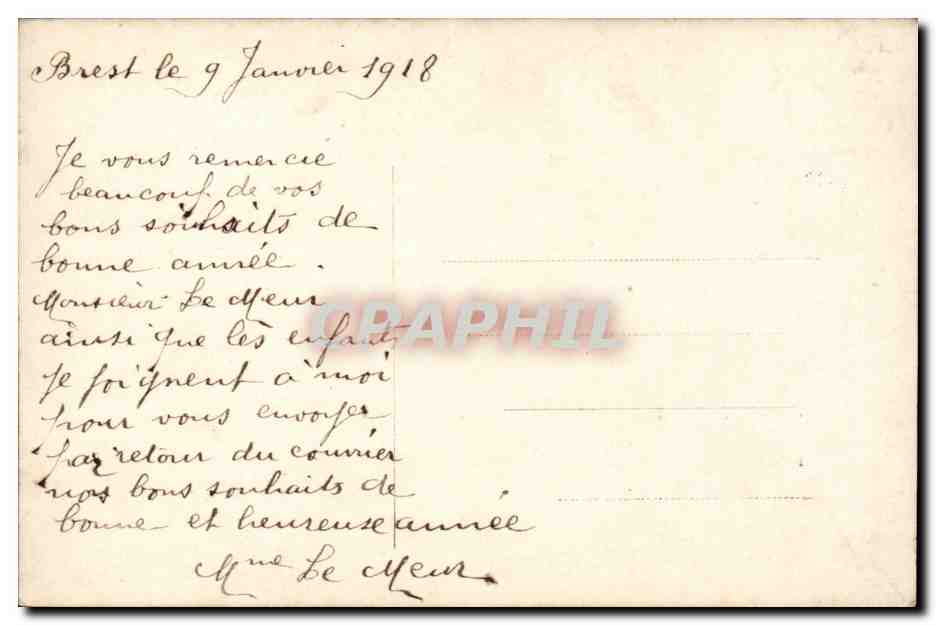 Brest le 9 Janvier 1918
Je vous remercie
beaucoup de vos
bons souhaits de
bonne année.
Monsieur Le Meur
ainsi que les enfants
se joignent à moi
pour vous envoyer
par retour du courrier
nos bons souhaits de
bonne et heureuse année
Mme Le Meur
CPAPHIL